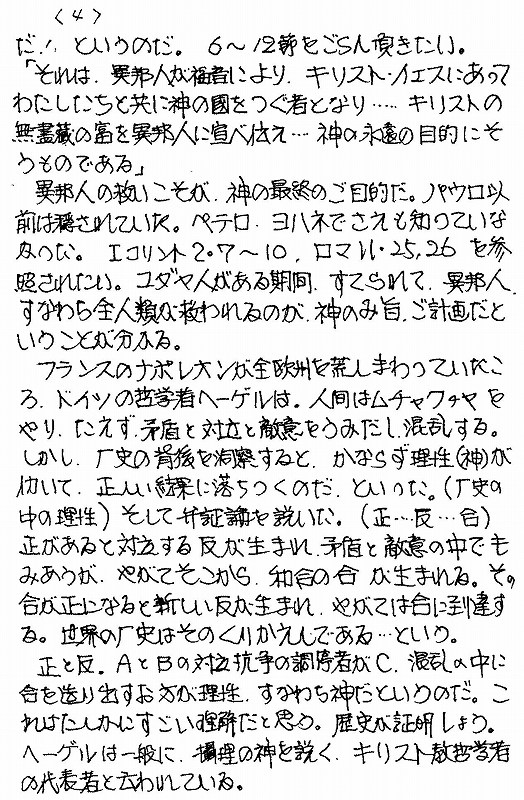 <4>
だ!! というのだ。 6〜12節をごらん頂きたい。
「それは、異邦人が福音により、キリスト・イエスにあって
わたしたちと共に神の國をつぐ者となり…… キリストの
無盡蔵の富を異邦人に宣べ伝え… 神の永遠の目的にそ
うものである」
異邦人の救いこそが、神の最終のご目的だ。パウロ以
前は穏されていた。ペテロ、ヨハネでさえも知っていな
かった。 エコリント2・7〜10, ロマ11・25,26 を参
照されたい。ユダヤ人がある期間、すてられて、異邦人、
すなわち全人類が救われるのが、神のみ旨、ご計画だと
いうことが分かる。
フランスのナポレオンが全欧州を荒しまわっていたこ
ろ、ドイツの哲学者ヘーゲルは、人間はムチャクチャを
やり、たえず、矛盾と対立と敵意をうみだし、混乱する。
しかし、厂史の背後を洞察すると、かならず理性(神)が
仂いて、正しい結果に落ちつくのだ、といった。(厂史の
中の理性) そして弁証論を説いた。(正…反…合)
正があると対立する反が生まれ、矛盾と敵意の中でも
みあうが、やがてそこから、和合の合 が生まれる。その
合が正になると新しい反が生まれ、やがては合に到達す
る。世界の厂史はそのくりかえしである…という。
正と反。AとBの対立抗争の調停者がC、混乱の中に
合を造り出すお方が理性、すなわち神だというのだ。こ
れはたしかにすごい理解だと思う。歴史が証明しよう。
ヘーゲルは一般に、摂理の神を説く、キリスト教哲学者
の代表者と云われている。